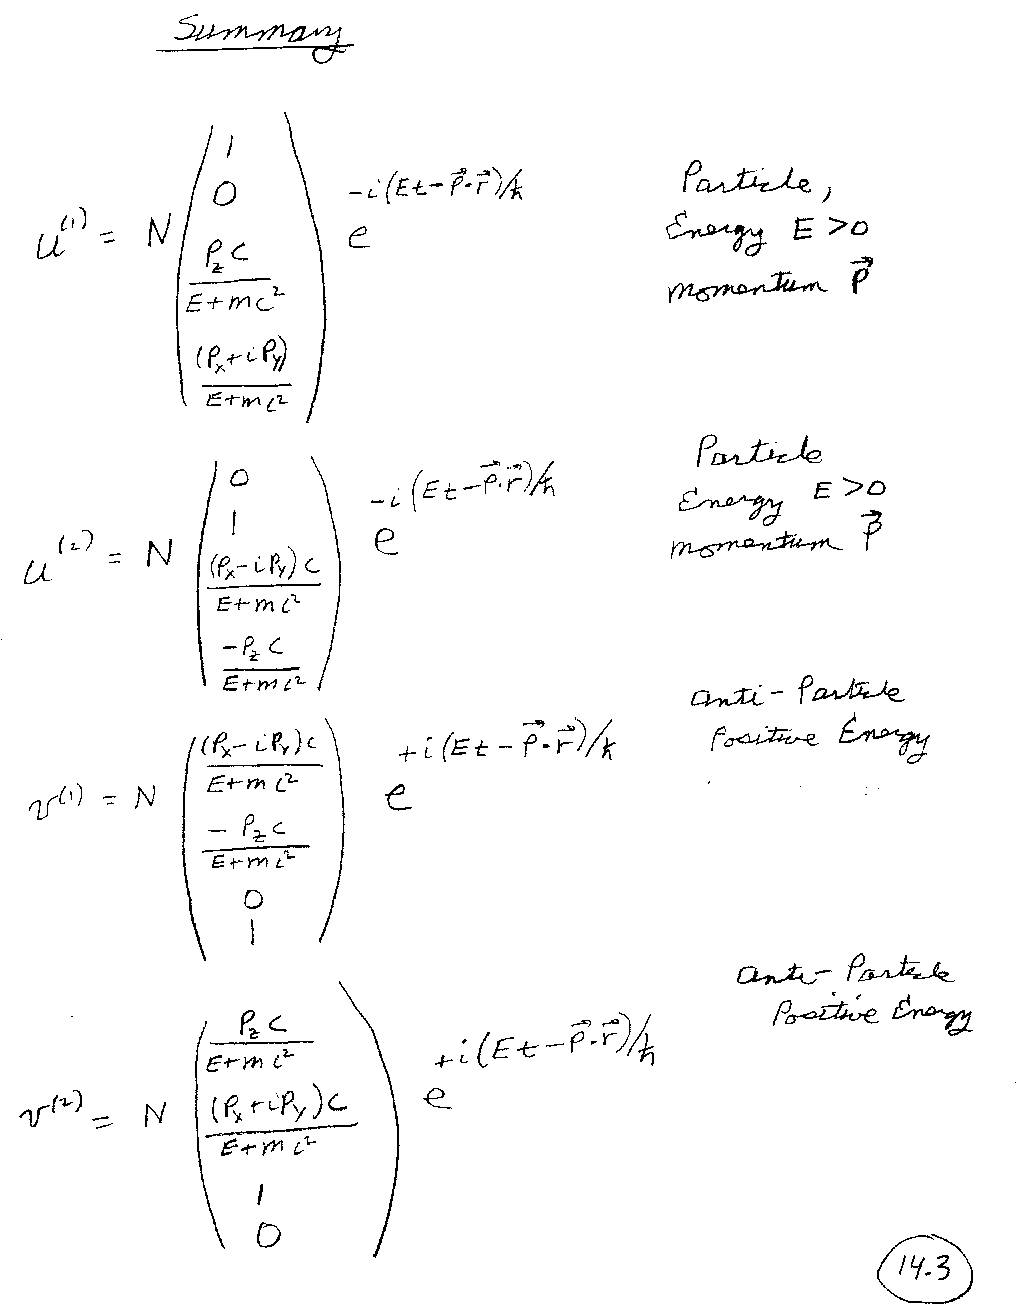 Summary
u^(1) = N ( 1, 0, P_z c / E+mc², (P_x+iP_y) / E+mc² ) e^{-i(Et-p⃗·r⃗)/ħ}
Particle,
Energy E>0
momentum p⃗
u^(2) = N ( 0, 1, (P_x-iP_y)c / E+mc², -P_z c / E+mc² ) e^{-i(Et-p⃗·r⃗)/ħ}
Particle
Energy E>0
momentum p⃗
v^(1) = N ( (P_x-iP_y)c / E+mc², -P_z c / E+mc², 0, 1 ) e^{+i(Et-p⃗·r⃗)/ħ}
anti-Particle
Positive Energy
v^(2) = N ( P_z c / E+mc², (P_x+iP_y)c / E+mc², 1, 0 ) e^{+i(Et-p⃗·r⃗)/ħ}
anti-Particle
Positive Energy
14.3